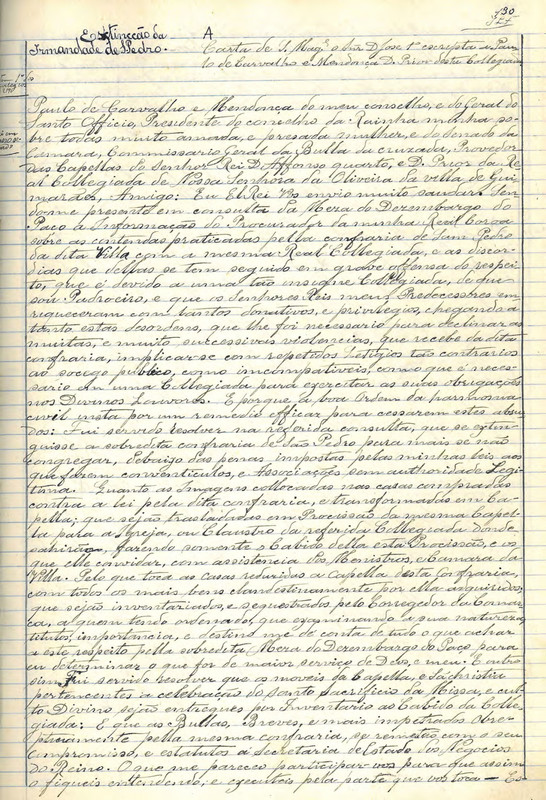 130
Extincção da
Irmandade de S. Pedro.
A
Carta de S. Magᵉ o Snr D. José 1º escripta a Pau-
lo de Carvalho e Mendonça D. Prior desta Collegiada
Paulo de Carvalho e Mendonça do meu conselho, e do Geral do
Santo Officio, Presidente do conselho da Rainha minha so-
bre todas muito amada, e presada mulher, e do Senado da
Camara, Commissario Geral da Bulla da cruzada, Provedor
das Capellas do Senhor Rei D. Affonso quarto, e D. Prior da Re-
al Collegiada de Nossa Senhora da Oliveira da villa de Gui-
marães, Amigo: Eu El Rei vos envio muito saudar. Sen-
dome presente em consulta da Meza do Dezembargo do
Paço a Informação do Procurador da minha Real Coroa
sobre as contendas praticadas pella confraria de Sam Pedro
da dita Villa com a mesma Real Collegiada, e as discor-
dias que dellas se tem seguido em grave offensa do respei-
to, que é devido a uma tão insigne Collegiada, de que
sou Padroeiro, e que os Senhores Reis meus Predecessores en-
riqueceram com tantos donativos, e privilegios, chegando a
tanto estas desordens, que lhe foi necessario para declinar as
muitas, e muito successivas violencias, que recebe da dita
confraria, implicar-se com repetidos Letigios tão contrarios
ao socego publico, como incompativeis, com o que é neces-
sario em uma Collegiada para exercitar as suas obrigações
nos Divinos Louvores. E porque a boa Ordem da harmonia
civil insta por um remedio efficaz para cessarem estes absu
dos: Fui servido resolver na referida consulta, que se extin-
guisse a sobredita confraria de São Pedro para mais se não
congregar, Debaixo das penas impostas pelas minhas leis aos
que fazem conventiculos, e Associações sem authoridade Legi-
tima. Quanto as Imagens collocadas nas casas compradas
contra a lei pela dita confraria, e transformadas em Ca-
pella; que sejão trasladadas em Procissão da mesma Capel-
la para a Igreja, ou Claustro da referida Collegiada donde
sahirão, fazendo somente o Cabido della esta Procissão, e os
que elle convidar, com assistencia dos Menistros, e Camara da
Villa. Pelo que toca as casas reduzidas a Capella desta confraria,
com todos os mais bens clandestinamente por ella adquiridos,
que sejão inventariados, e sequestrados pelo Corregedor da Comar-
ca, a quem tenho ordenado, que examinando a sua natureza,
titulos, importancia, e destino me dê conta de tudo o que achar
a este respeito pella sobredita Meza do Dezembargo do Paço para
eu determinar o que for de maior serviço de Deos, e meu: E outro
sim Fui servido resolver que os moveis da Capella, e Sachristia
pertencentes a celebração do Santo Sacrificio da Missa, e cul-
to Divino sejão entregues por Inventario ao Cabido da Colle-
giada: E que as Bullas, Breves, e mais impetrados obre-
pticiamente pella mesma confraria, se remettão com o seu
compromisso, e estatutos á Secretaria de Estado dos Negocios
do Reino. O que me pareceo participar-vos para que assim
o fiqueis entendendo, e executeis pela parte que vos toca — Es-